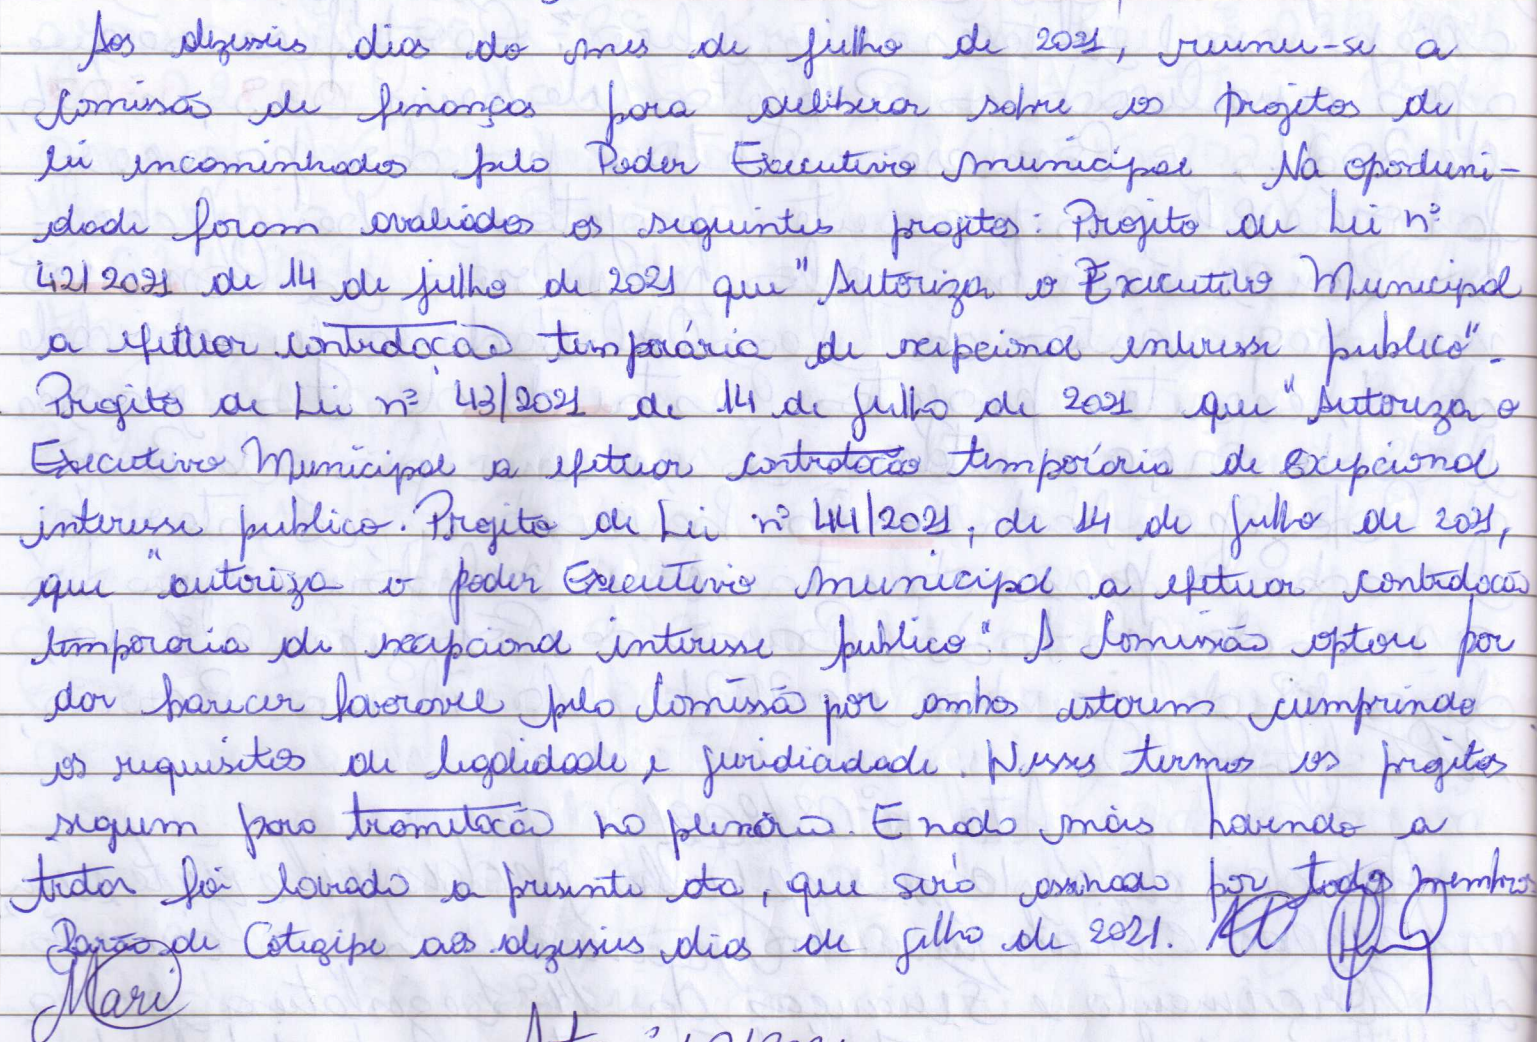 Aos dezesseis dias do mês de julho de 2021, reuniu-se a
Comissão de finanças para deliberar sobre os projetos de
lei encaminhados pelo Poder Executivo Municipal. Na oportuni-
dade foram avaliados os seguintes projetos: Projeto de Lei nº
42/2021 de 14 de julho de 2021 que "Autoriza o Executivo Municipal
a efetuar contratação temporária de excepcional interesse publico".
Projeto de Lei nº 43/2021 de 14 de julho de 2021 que "Autoriza o
Executivo Municipal a efetuar contratação temporária de excepcional
interesse publico. Projeto de Lei nº 44/2021, de 14 de julho de 2021,
que "autoriza o poder Executivo Municipal a efetuar contratação
temporaria de excepcional interesse publico". A Comissão optou por
dar parecer favoravel pela Comissão por ambos estarem cumprindo
os requisitos de legalidade e juridicidade. Nesses termos os projetos
seguem para tramitação no plenário. E nada mais havendo a
tratar foi lavrada a presente ata, que será assinada por todos membros
Barão de Cotegipe aos dezesseis dias de julho de 2021.
Mari